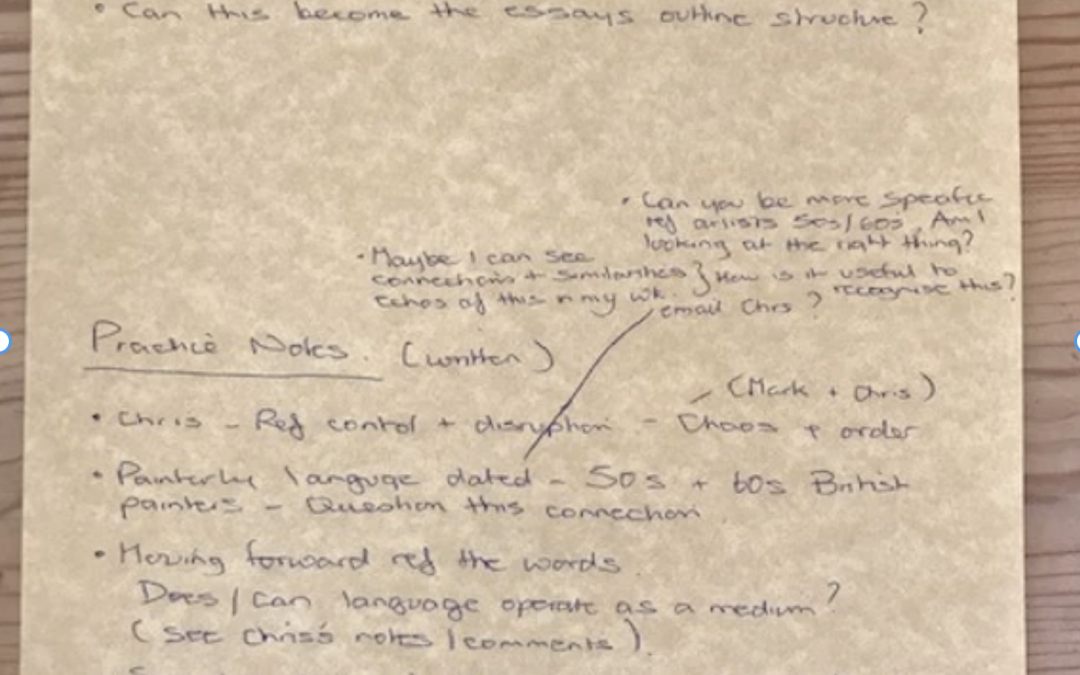 • Can this become the essays outline structure ?
• Can you be more specific
ref artists 50s/60s. Am I
looking at the right thing?
• Maybe I can see
connections + similarities } How is it useful to
echos of this in my wk. recognise this?
email Chris ?
Practice Notes. (written)
(Mark + Chris)
• Chris - Ref control + disruption - Chaos + order
• Painterly languge dated - 50s + 60s British
painters - Question this connection
• Moving forward ref the words.
Does / Can language operate as a medium ?
( See Chris's notes / comments ).